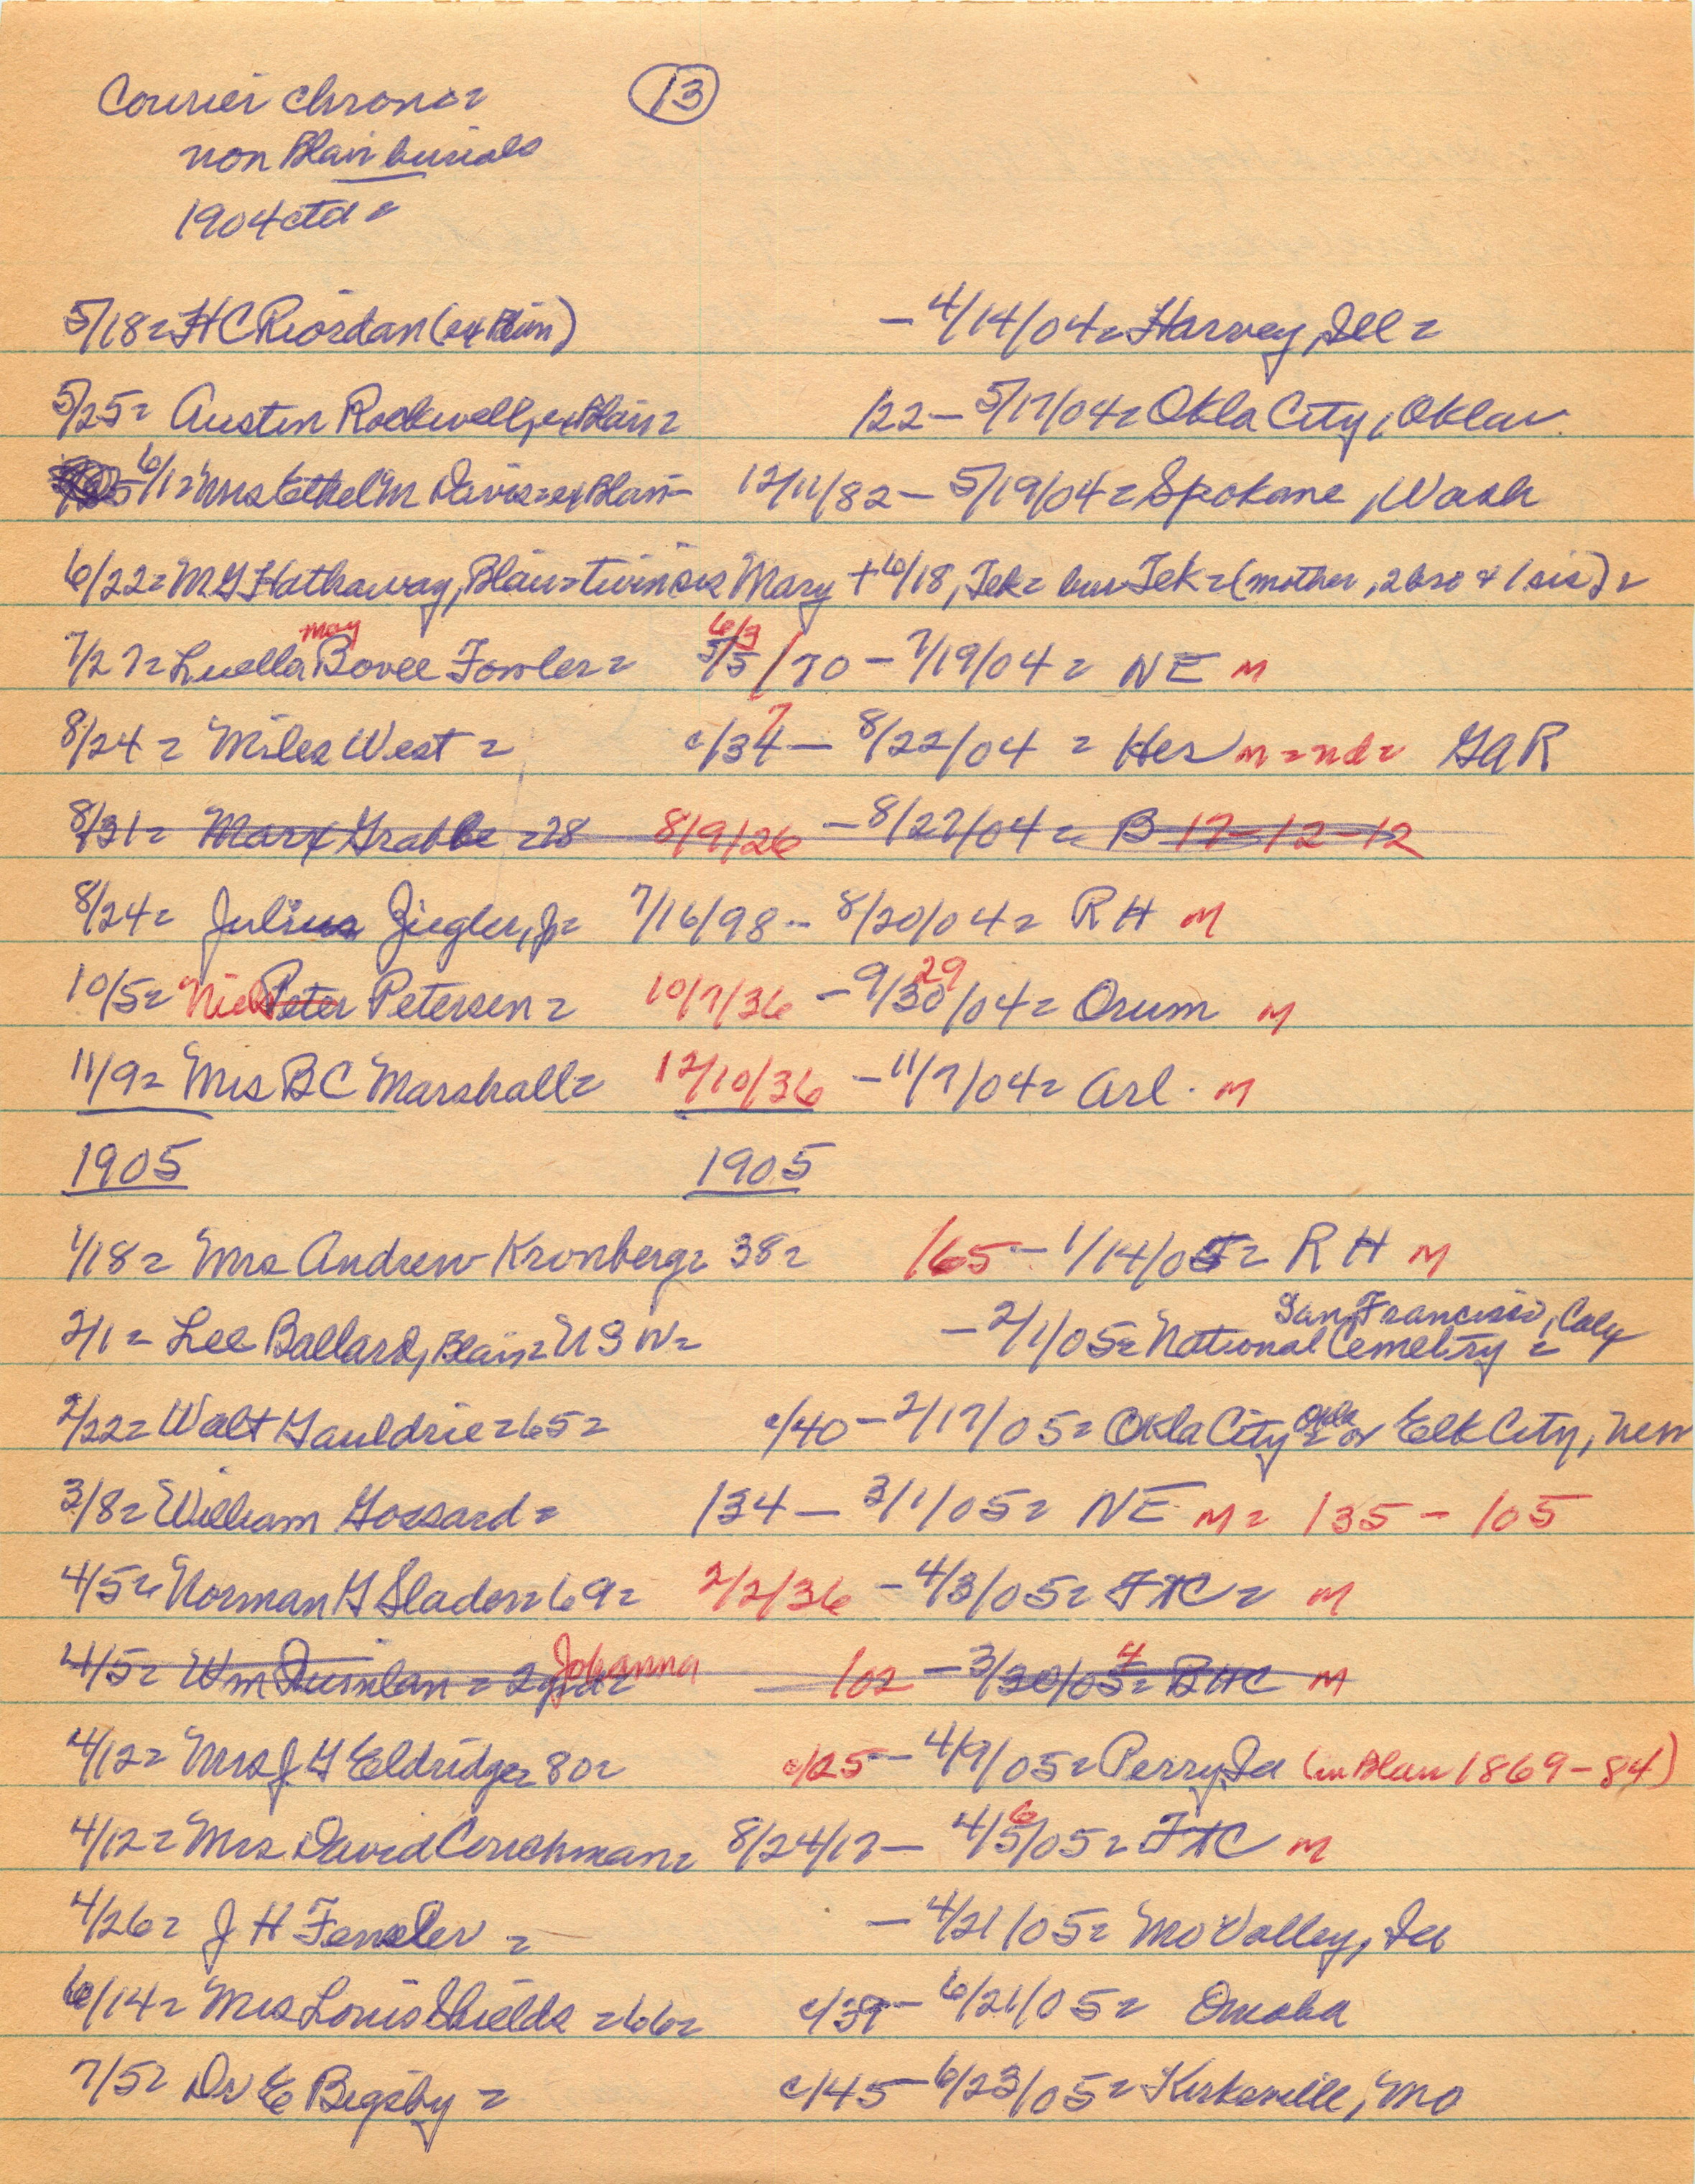 Courier chrono= (13)
non Blair burials
1904 ctd =
5/18= H C Riordan (ex Blair) - 4/14/04= Harvey, Ill =
5/25= Austin Rockwell, ex Blair= /22 - 5/17/04= Okla City, Okla
6/1= Mrs Ethel M Davis= ex Blair- 12/11/82 - 5/19/04= Spokane, Wash
6/22= M G Hathaway, Blair= twin sis Mary + 6/18, Tek= bur Tek= (mother, 2 bro & 1 sis) =
7/27= Luella May Bovee Fowler= 5/5 6/3 /70 - 7/19/04= NE M
8/24= Miles West = c/34 7 - 8/22/04 = Her M = nd= GAR
8/31= Mary Grabbe =78 8/9/26 - 8/27/04= B 17-12-12
8/24= Julius Ziegler, Jr= 7/16/98 - 8/20/04= RH M
10/5= Niels Peter Petersen= 10/7/36 - 9/30 29 /04= Orum M
11/9= Mrs B C Marshall= 12/10/36 - 11/7/04= Arl. M
1905 1905
1/18= Mrs Andrew Kronberg= 38= /65 - 1/14/05= RH M
2/1= Lee Ballard, Blair= USN= - 2/1/05= National Cemetery = San Francisco, Caly
2/22= Walt Gauldrie=65= c/40 - 2/17/05= Okla City Okla = or Elk City, New
3/8= William Gossard= /34 - 3/1/05= NE M= /35 - /05
4/5= Norman G Slader=69= 2/2/36 - 4/3/05= FTC= M
4/5= Wm Quinlan = Johanna /02 - 3/30/05 4 = BHC M
4/12= Mrs J G Eldridge= 80= c/25 - 4/9/05= Perry, Ia (in Blair 1869-84)
4/12= Mrs David Couchman= 8/24/17 - 4/5 6 /05= FTC M
4/26= J H Fensler = - 4/21/05= Mo Valley, Ia
6/14= Mrs Louis Shields =66= c/39 - 6/21/05= Omaha
7/5= Dr E Bigsby = c/45 - 6/23/05= Kirksville, Mo